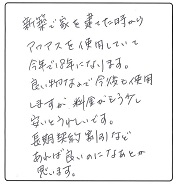 新築で家を建てた時から
アクアスを使用していて
今年で18年になります。
良い物なので今後も使用
しますが料金がもう少し
安いとうれしいです。
長期契約割引など
あれば良いのになあとの
思います。